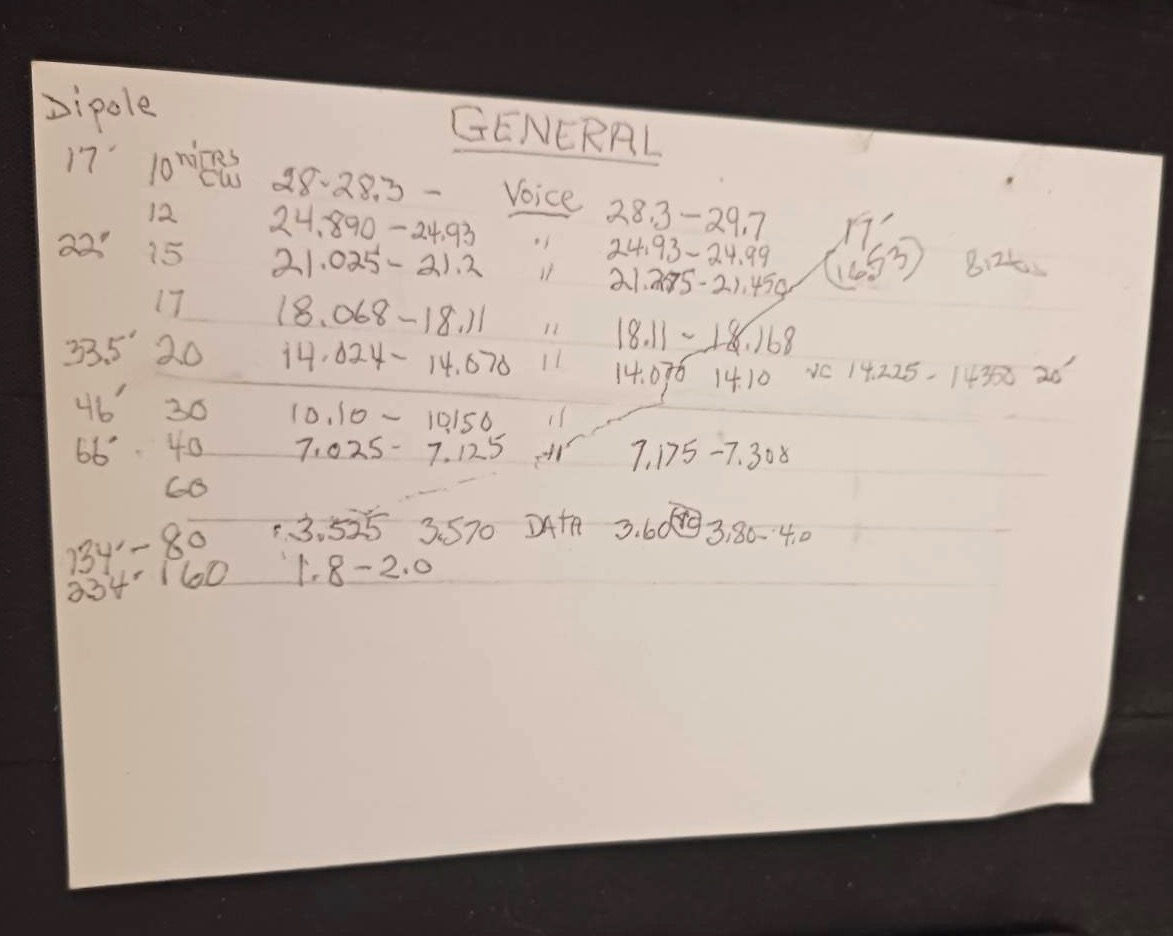 Dipole
GENERAL
17' 10 MTRS CW 28-28.3 - Voice 28.3-29.7
12 24.890-24.93 " 24.93-24.99 17'
22' 15 21.025-21.2 " 21.275-21.450 (1653)
17 18.068-18.11 " 18.11-18.168
33.5' 20 14.024- 14.070 " 14.070 14.10 VC 14.225- 14350 20'
46' 30 10.10- 10.150 "
66' 40 7.025- 7.125 " 7.175-7.308
60
134'- 80 3.525 3.570 DATA 3.60 3.80-4.0
234'- 160 1.8-2.0